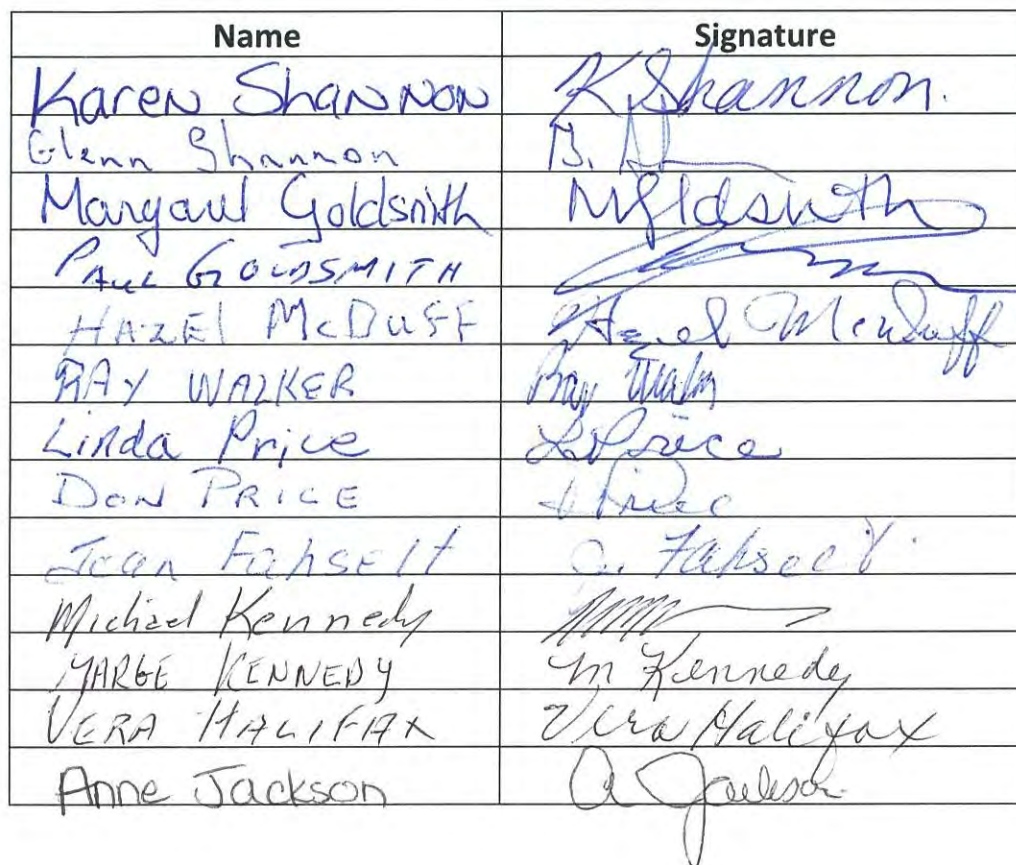 Name Signature
Karen Shannon K Shannon.
Glenn Shannon
Margaret Goldsmith MGoldsmith
PAUL GOLDSMITH
HAZEL McDUFF Hazel McDuff
RAY WALKER Ray Walker
Linda Price L Price
DON PRICE D Price
Jean Fahselt J. Fahselt
Michael Kennedy
MARGE KENNEDY M Kennedy
VERA HALIFAX Vera Halifax
Anne Jackson A Jackson